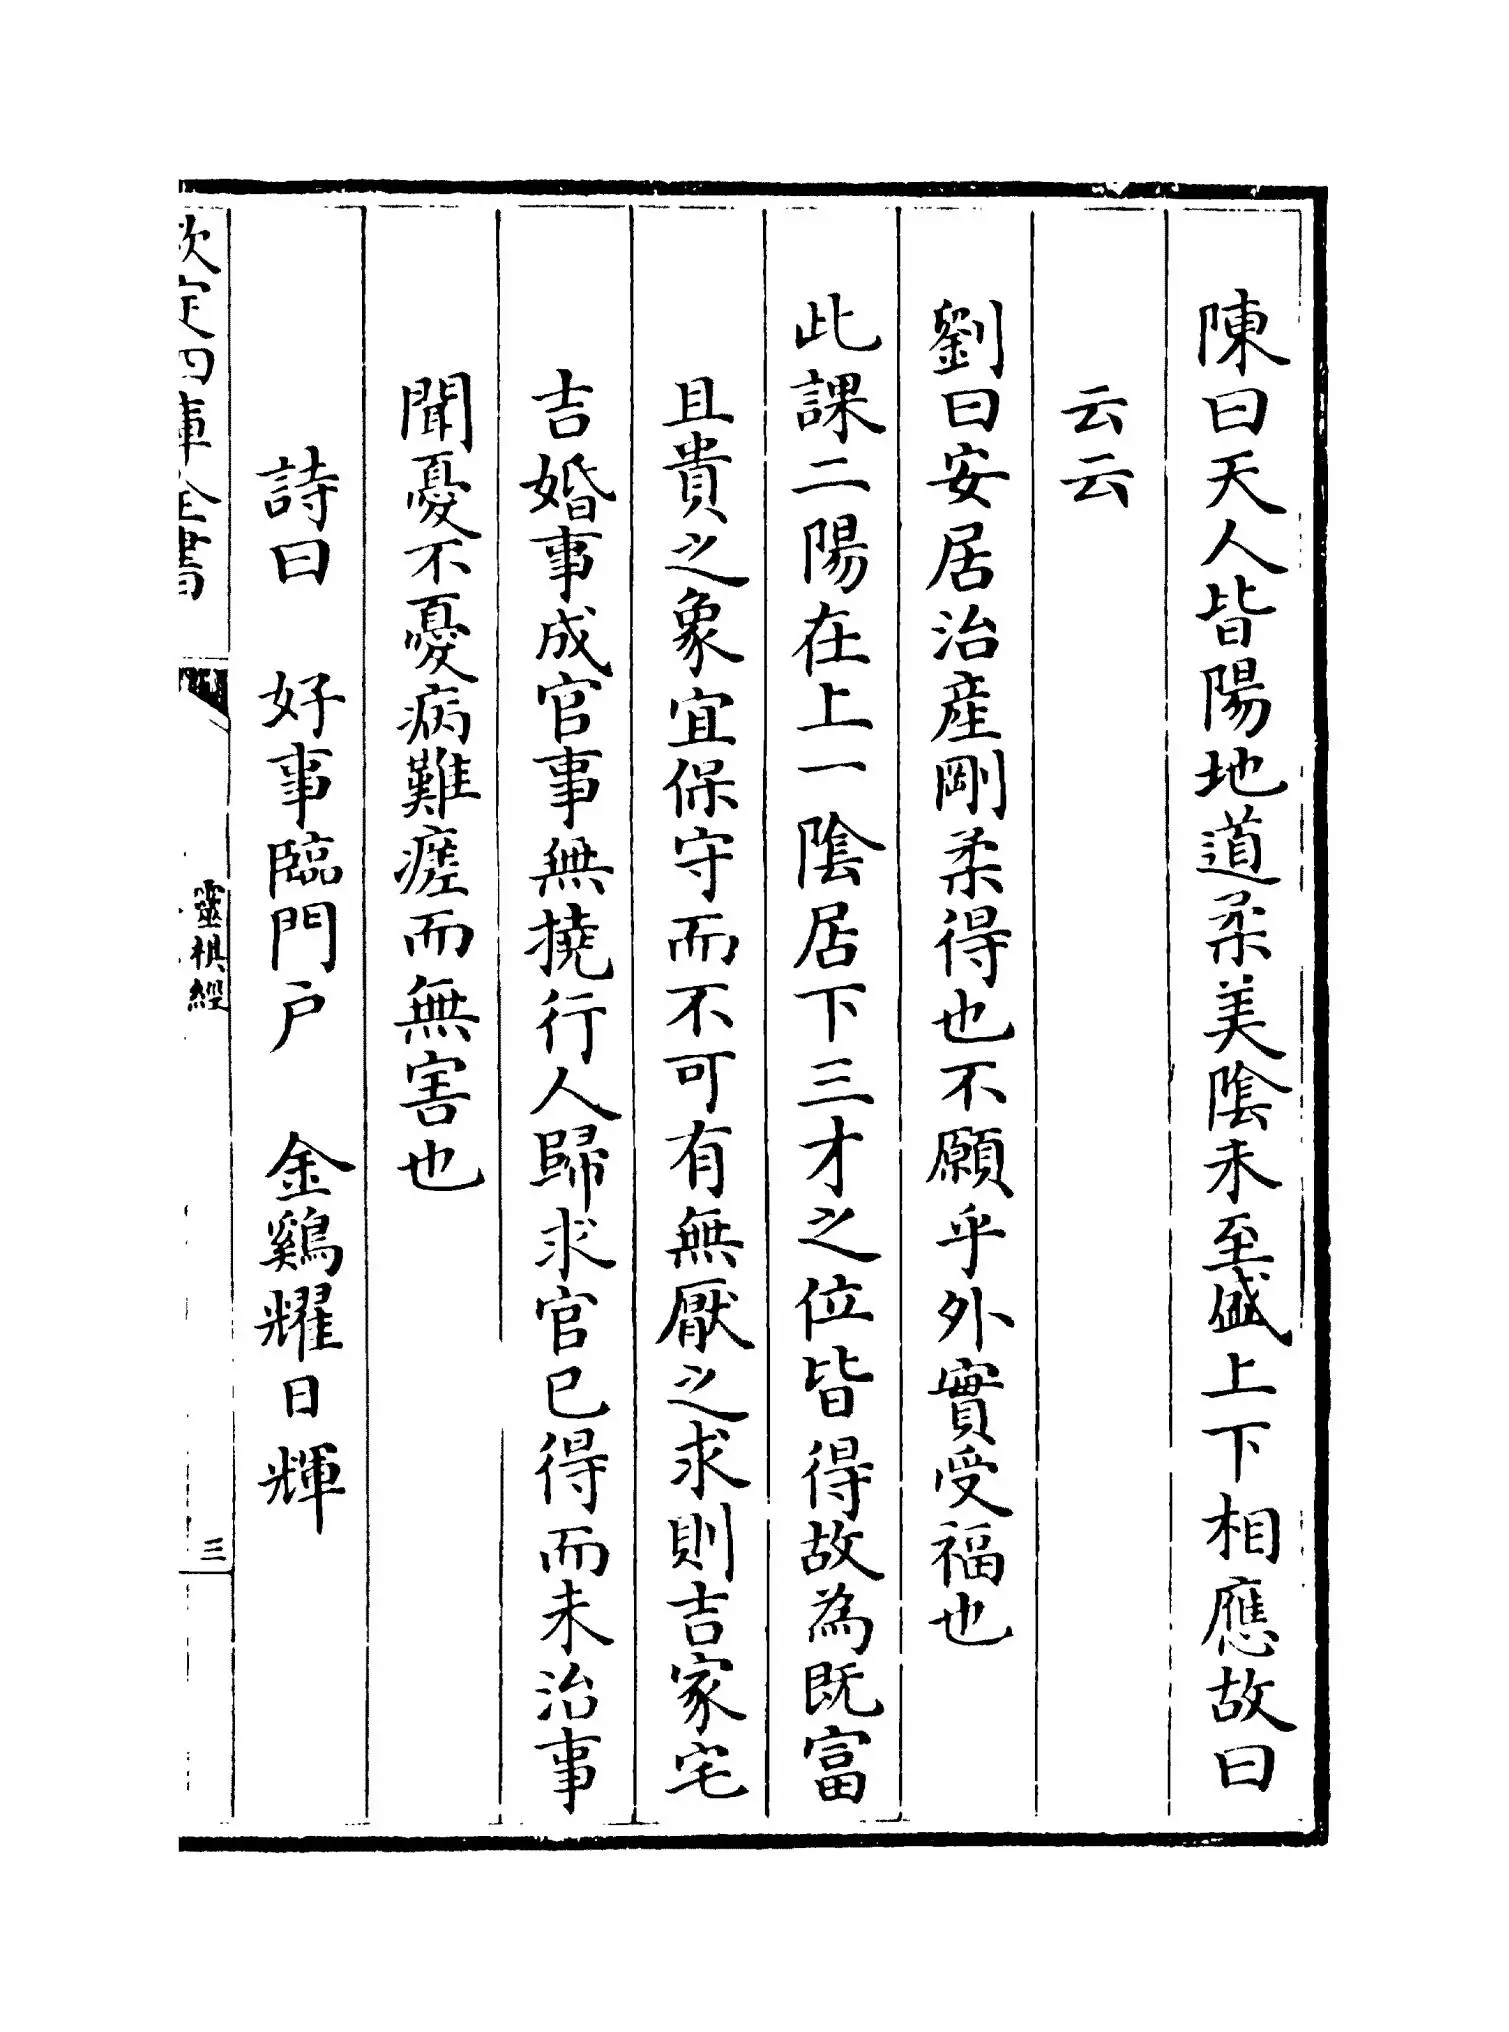 陳曰天人皆陽地道柔美陰未至盛上下相應故曰
云云
劉曰安居治產剛柔得也不願乎外實受福也
此課二陽在上一陰居下三才之位皆得故為既富
且貴之象宜保守而不可有無厭之求則吉家宅
吉婚事成官事無撓行人歸求官已得而未治事
聞憂不憂病難瘥而無害也
詩曰 好事臨門戶 金鷄耀日輝
欽定四庫全書 靈棋經 三